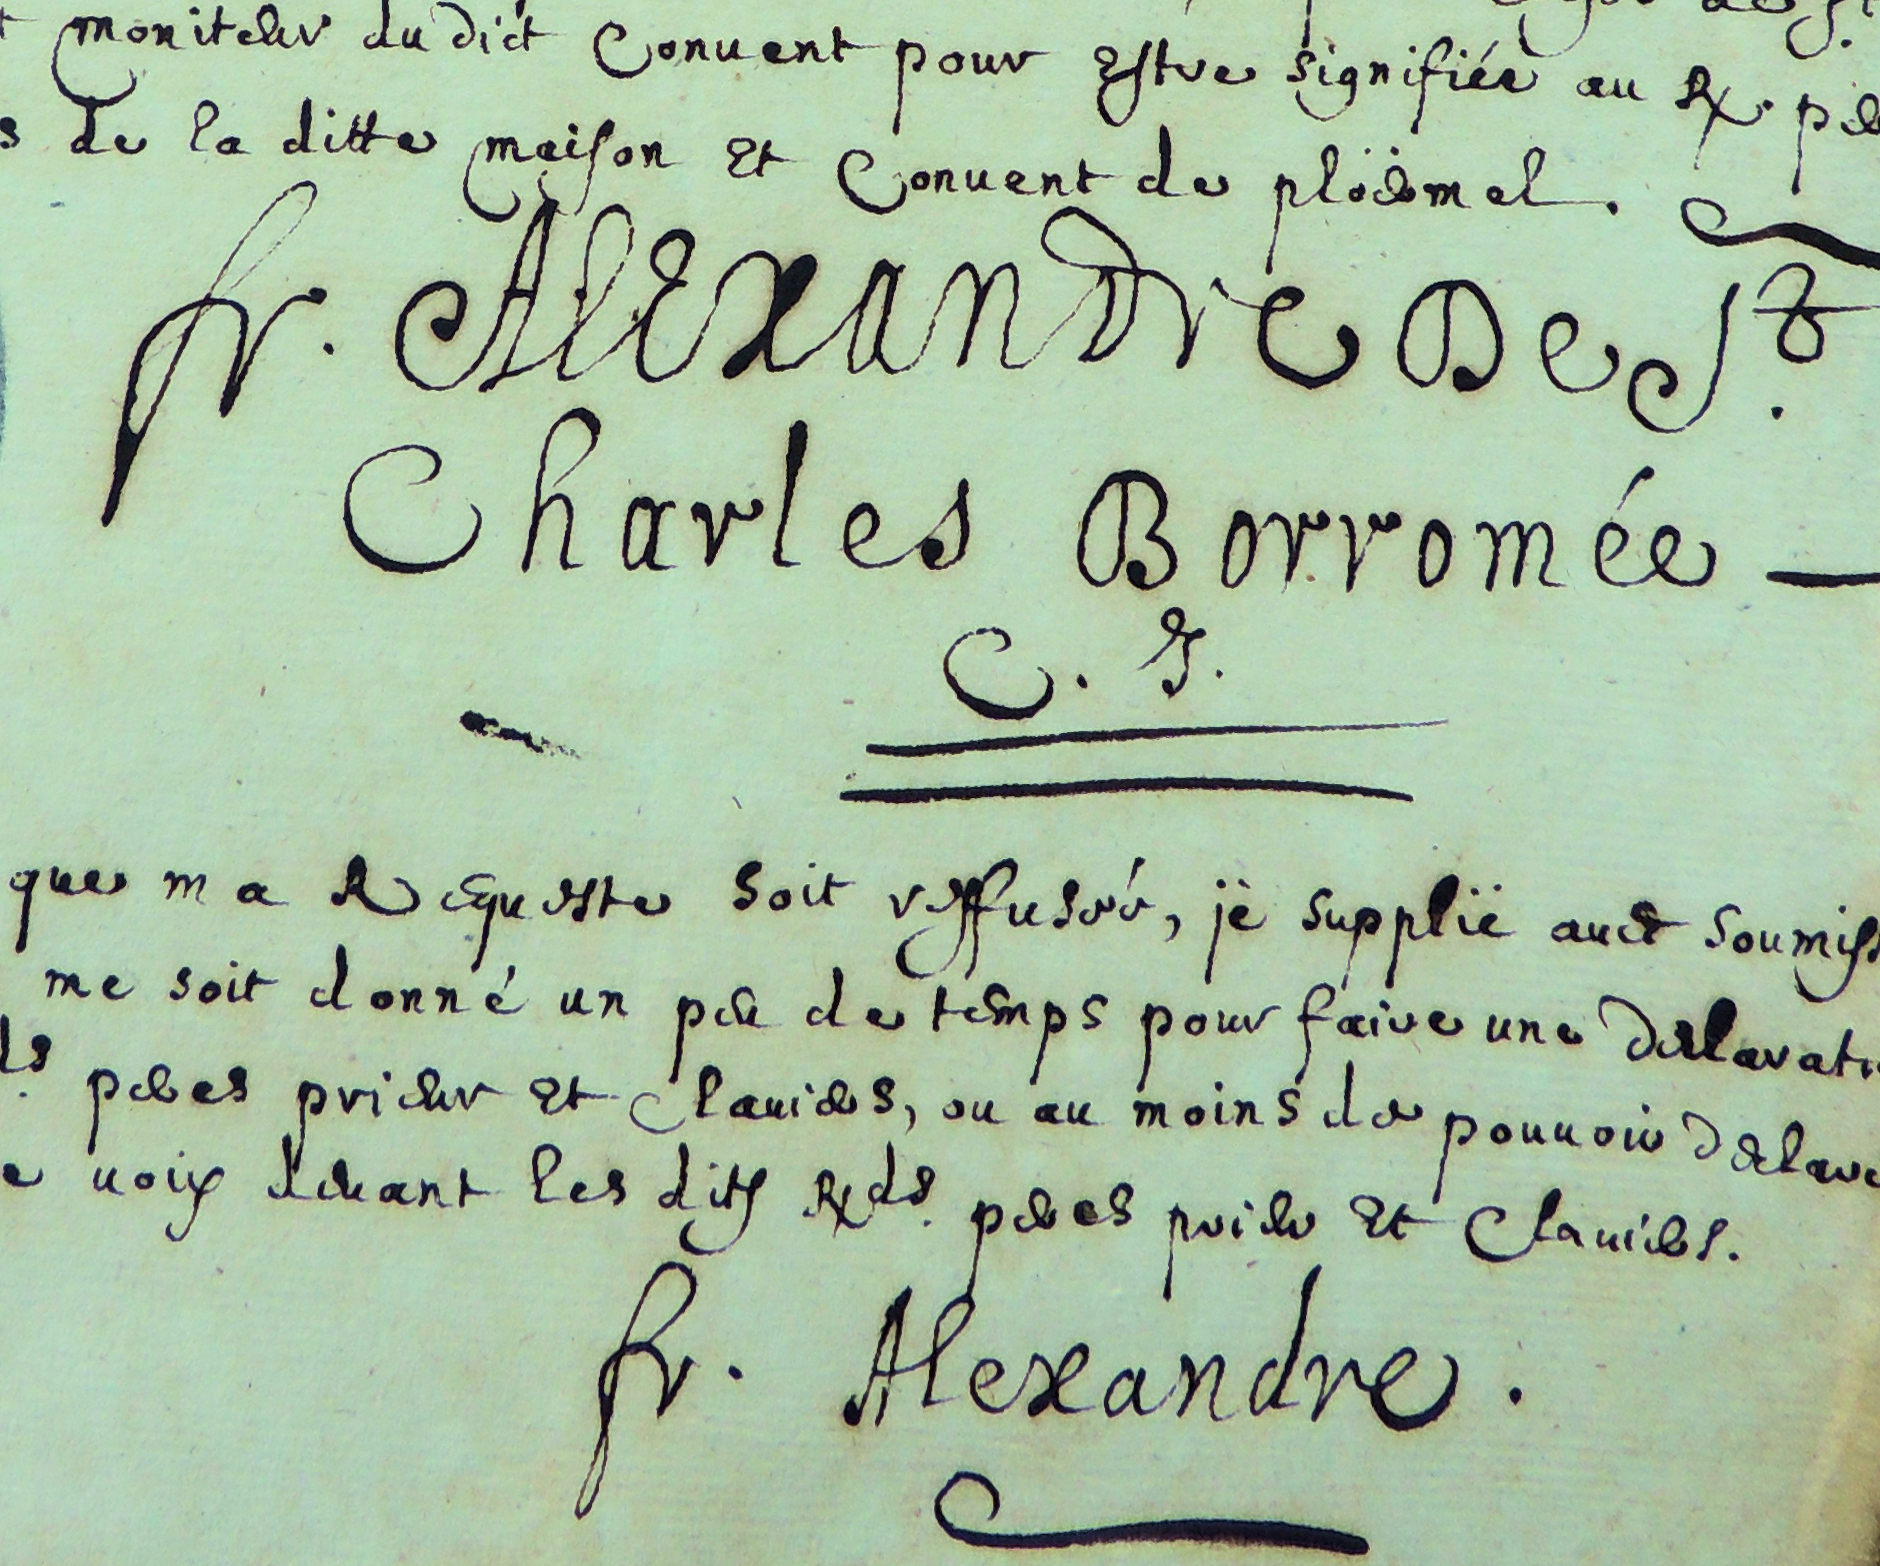 moniteur dudict Conuent pour Estre signifiée au R.
de la ditte maison Et Conuent de plöermel.
fr. Alexandre De St.
Charles Borromée —
C. I.
que ma Requeste soit reffusée, je supplie auec soumiss
me soit donné un peu de temps pour faire une declarati
ds. peres prieur Et Clauiers, ou au moins de pouuoir declare
e uoix deuant les dits Rds. peres prieur Et Clauiers.
fr. Alexandre.